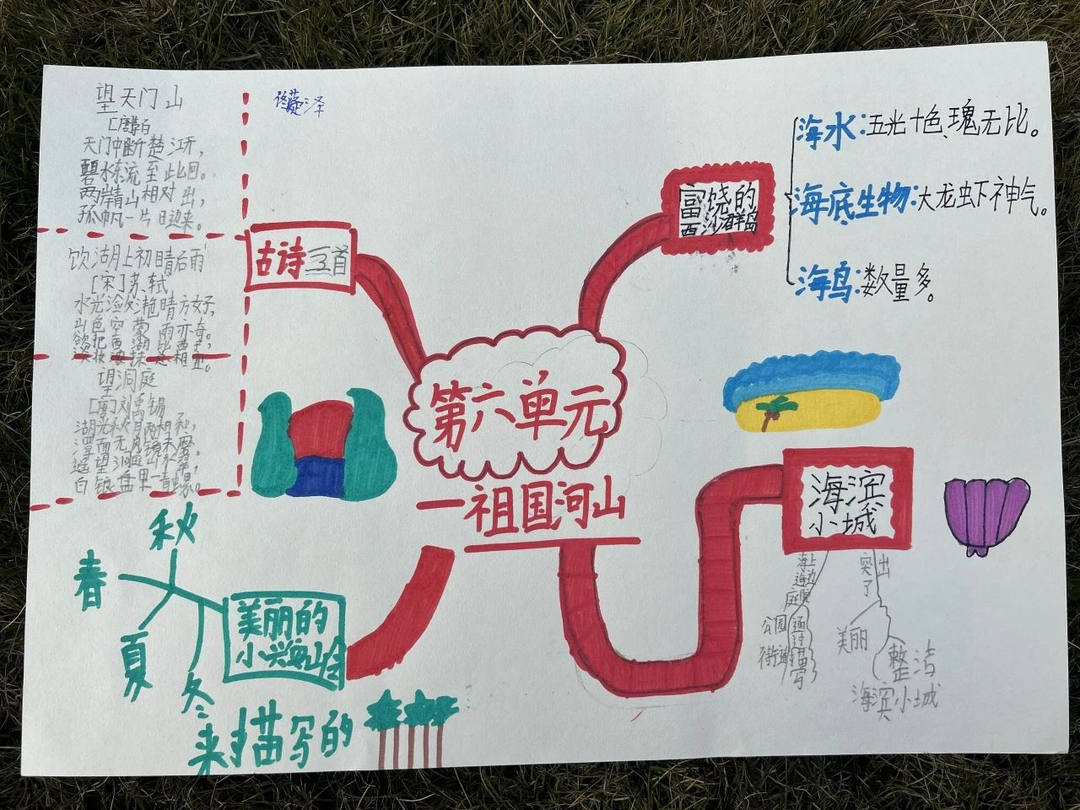 望天门山
天门中断楚江开，
碧水东流至此回。
两岸青山相对出，
孤帆一片日边来。
饮湖上初晴后雨
[宋]苏轼
水光潋滟晴方好，
山色空蒙雨亦奇。
欲把西湖比西子，
淡妆浓抹总相宜。
望洞庭
[唐]刘禹锡
湖光秋月两相和，
潭面无风镜未磨。
遥望洞庭山水翠，
白银盘里一青螺。
古诗三首
第六单元
一祖国河山
富饶的
西沙群岛
海水:五光十色、瑰无比。
海底生物:大龙虾神气。
海鸟:数量多。
海滨
小城
海上
海边
庭院
公园
街道
通过
描写
突出
了
美丽
整洁
海滨小城
美丽的
小兴安岭
春
夏
秋
冬
来描写的